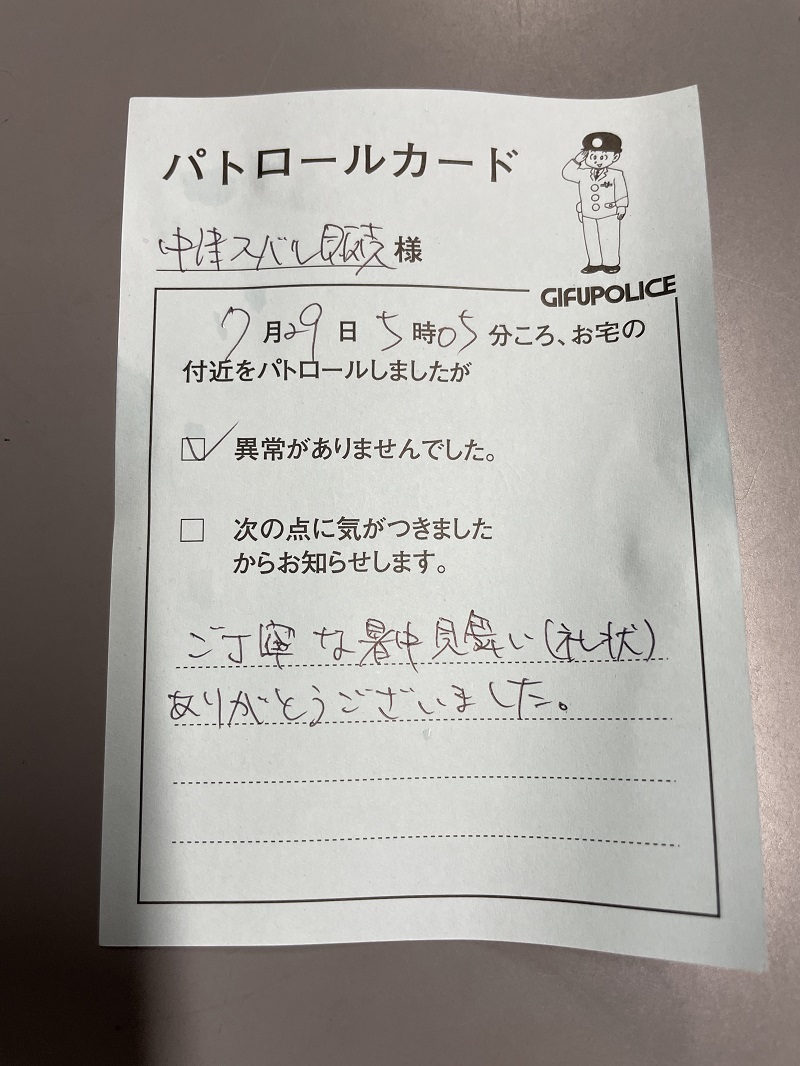 パトロールカード
中津スバル販売様
GIFUPOLICE
7月29日 5時05分ころ、お宅の
付近をパトロールしましたが
異常がありませんでした。
次の点に気がつきました
からお知らせします。
ご丁寧な暑中見舞い(礼状)
ありがとうございました。